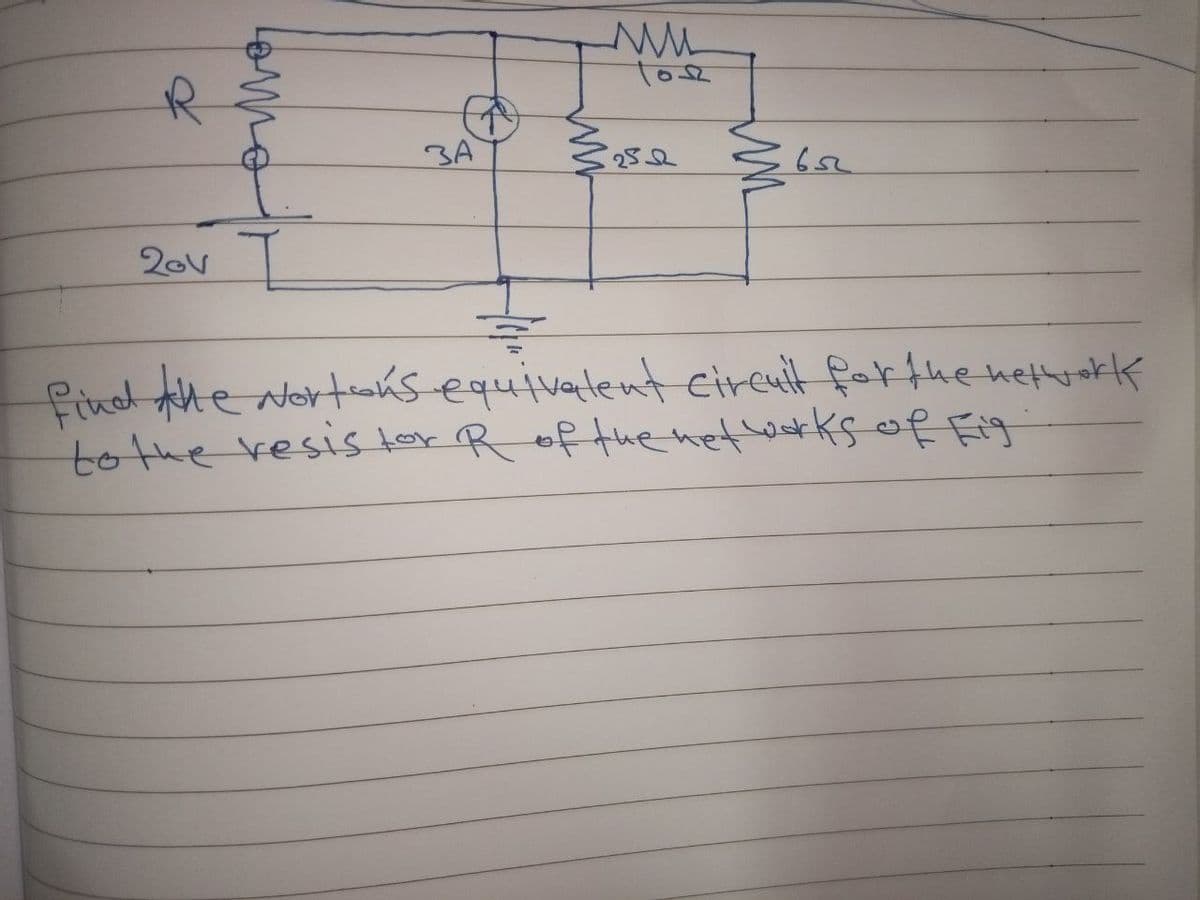 10Ω
R
3A
25Ω
6Ω
20V
find the Norton's equivalent circuit for the network
to the resistor R of the networks of Fig